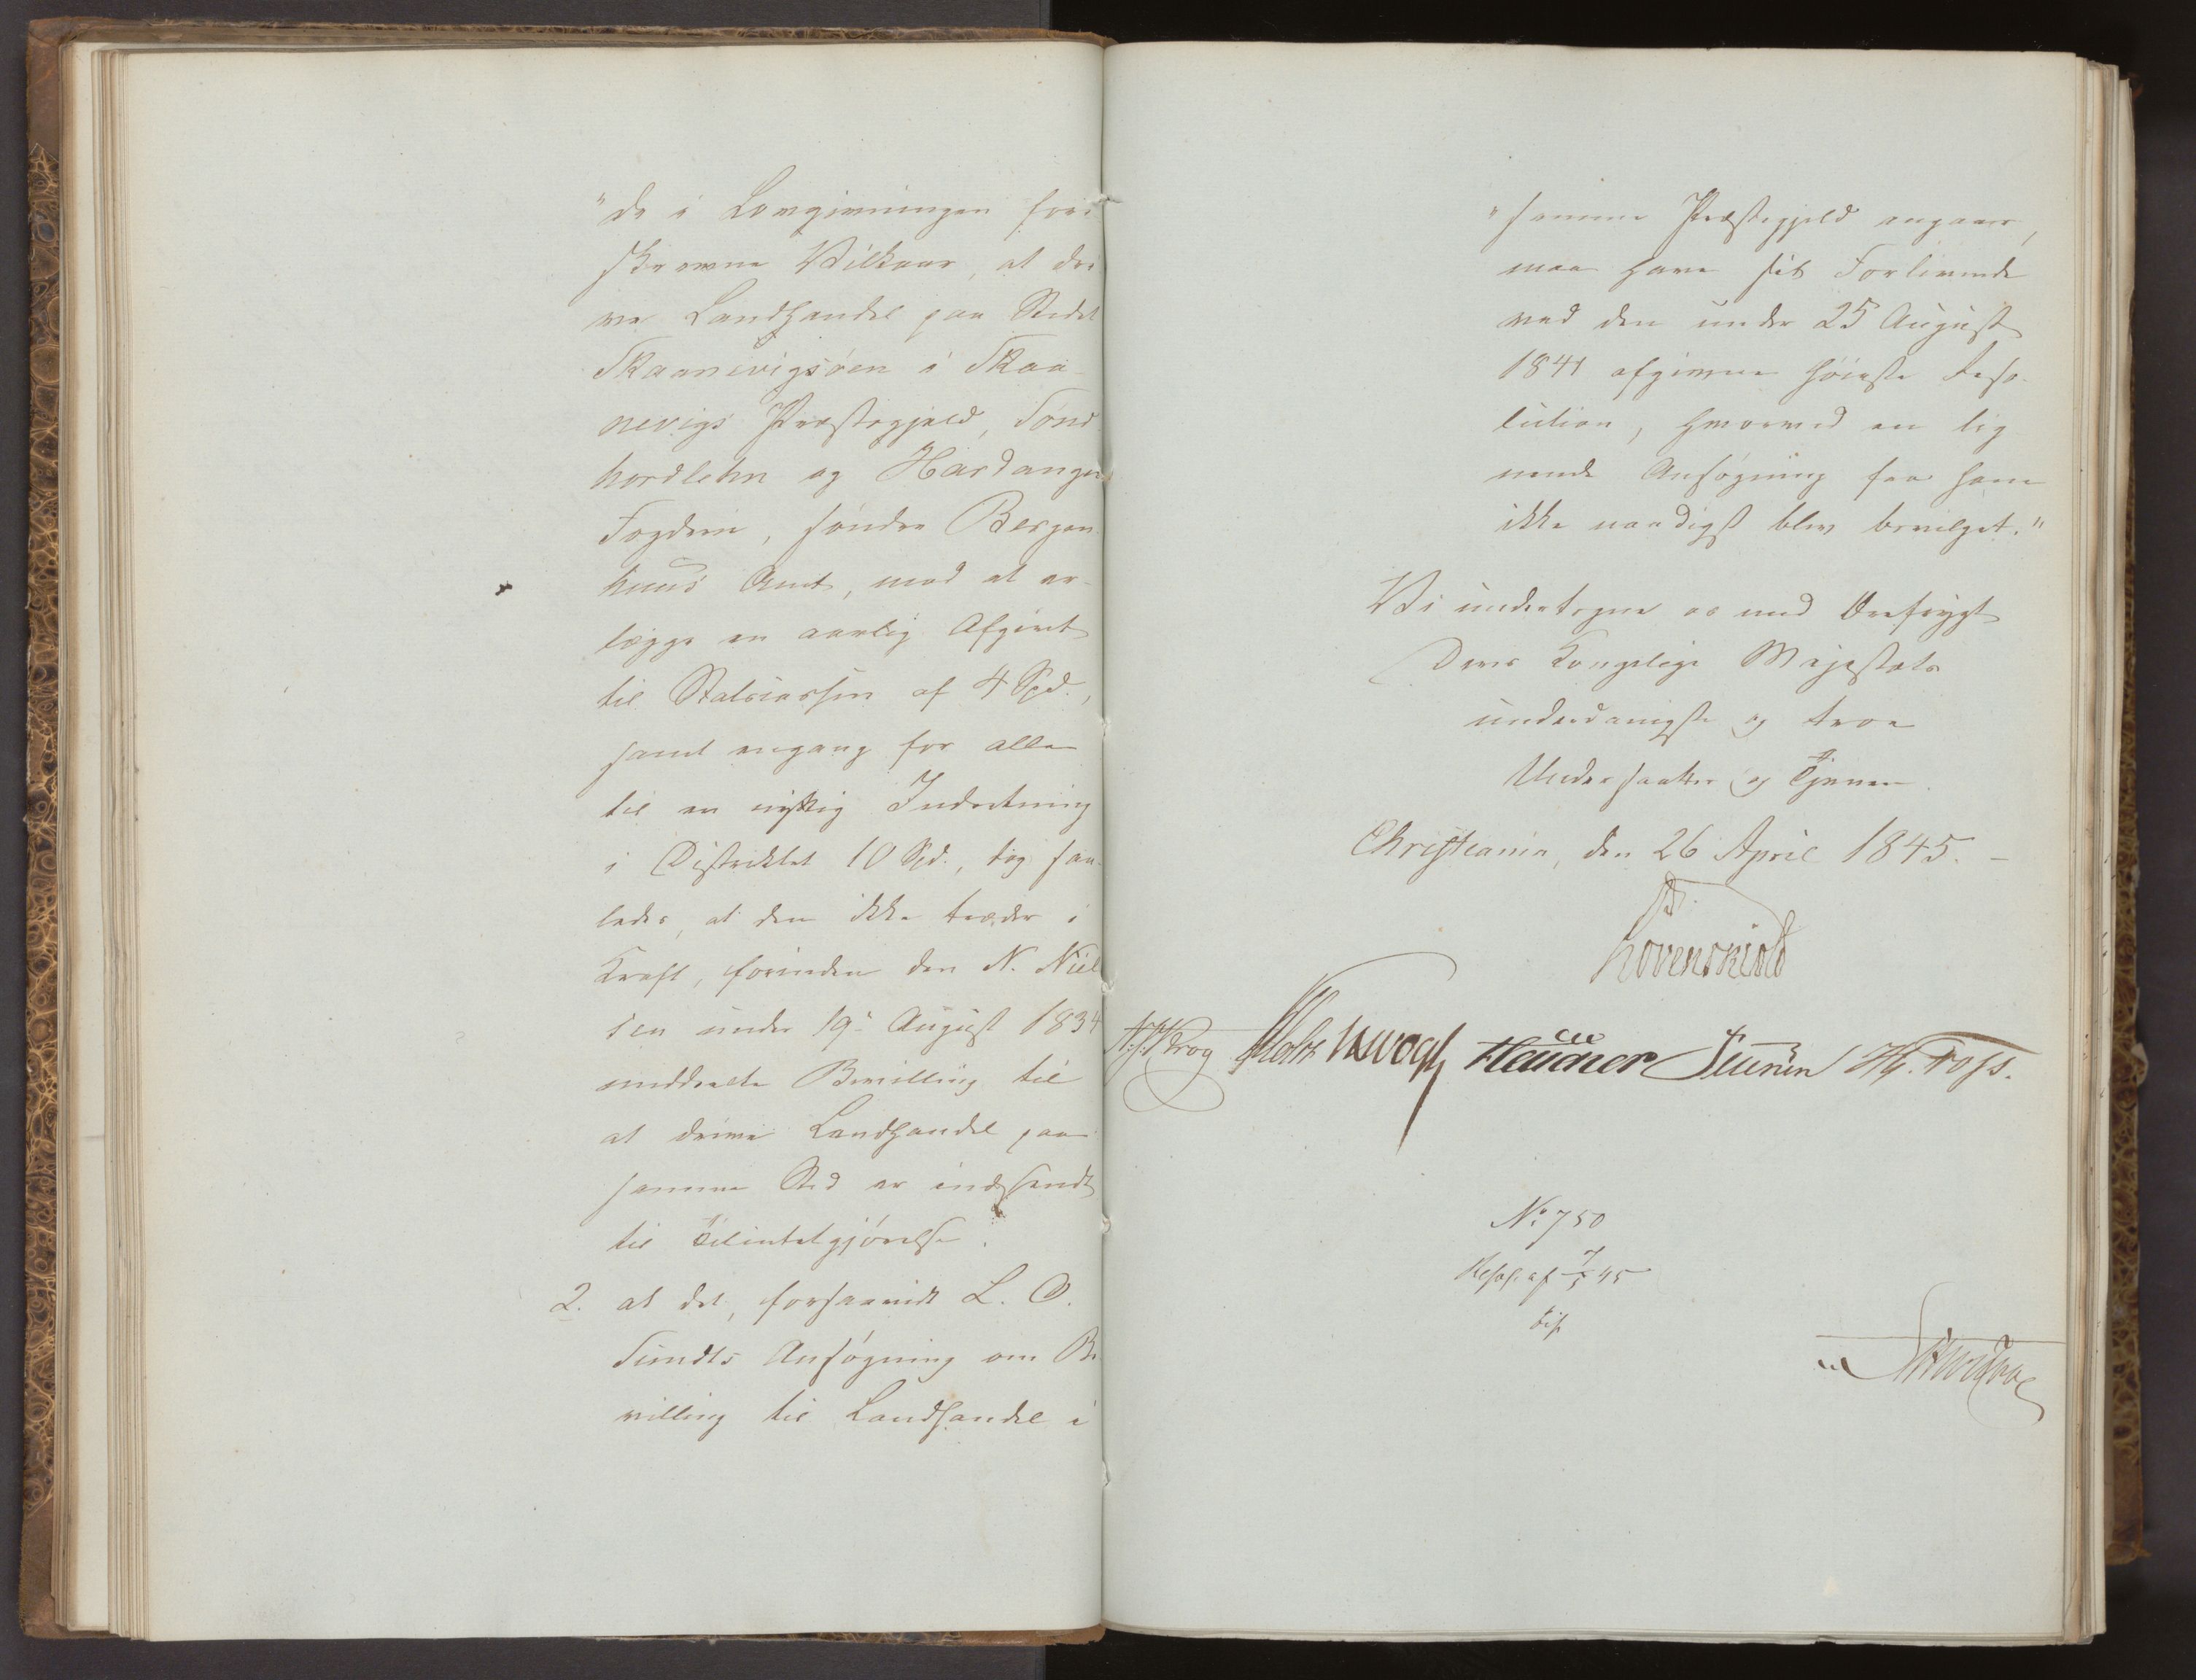 "de i Lovgivningen fore
skrevne Vilkaar, at dri
ve Landhandel paa Stedet
Skaanevigsøen i Skaa-
nevigs Præstegjeld, Sønd
hordlehn og Hardanger
Fogderi, søndre Bergen
huus Amt, mod at er-
lægge en aarlig Afgivt
til Statscassen af 4 Spd.,
samt engang for alle
til en nyttig Indretning
i Distriktet 10 Spd., dog saa-
ledes, at den ikke træder i
Kraft, forinden den N. Niel
sen under 19de August 1834
meddeelte Bevilling til
at drive Landhandel paa
samme Sted er indsendt
til Tilintetgjørelse.
2. at det, forsaavidt L. O.
Sundts Ansøgning om Be
villing til Landhandel i
"samme Præstegjeld angaaer,
maa have sit Forblivende
ved den under 25 August
1841 afgivne høieste Reso-
lution, hvorved en lig
nende Ansøgning fra ham
ikke naadigst blev bevilget."
Vi undertegne os med Ærefrygt
Deres Kongelige Majestæts
underdanigste og troe
Undersaatter og Tjenere.
Christiania, den 26 April 1845. -
Løvenskiold
Krog Holst Vogt Sibbern Foss.
No. 750
Resol. af 7/5 45